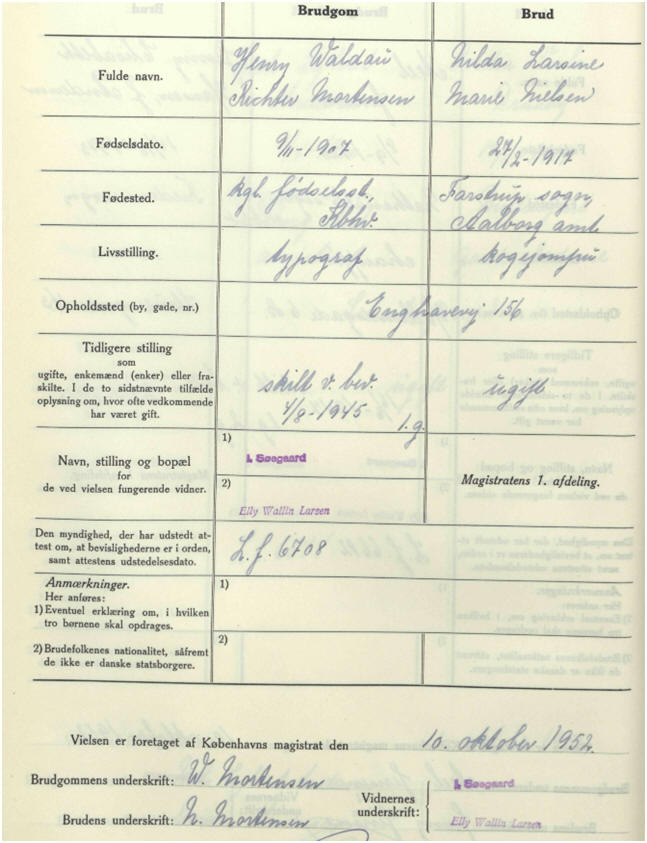 Brudgom
Brud
Fulde navn.
Henry Waldau
Richter Mortensen
Nilda Larsine
Marie Nielsen
Fødselsdato.
9/11-1907
27/2-1917
Fødested.
kgl. fødselsst.,
Kbhv.
Farstrup sogn,
Aalborg amt
Livsstilling.
typograf
kogejomfru
Opholdssted (by, gade, nr.)
Enghavevej 156
Tidligere stilling
som
ugifte, enkemænd (enker) eller fra-
skilte. I de to sidstnævnte tilfælde
oplysning om, hvor ofte vedkommende
har været gift.
skilt v. bev.
4/8-1945
1. g.
ugift
Navn, stilling og bopæl
for
de ved vielsen fungerende vidner.
1)
I. Søegaard
2)
Elly Wallin Larsen
Magistratens 1. afdeling.
Den myndighed, der har udstedt at-
test om, at bevislighederne er i orden,
samt attestens udstedelsesdato.
L. f. 6708
Anmærkninger.
Her anføres:
1) Eventuel erklæring om, i hvilken
tro børnene skal opdrages.
1)
2) Brudefolkenes nationalitet, såfremt
de ikke er danske statsborgere.
2)
Vielsen er foretaget af Københavns magistrat den 10. oktober 1952.
Brudgommens underskrift: W. Mortensen
Brudens underskrift: N. Mortensen
Vidnernes
underskrift:
I. Søegaard
Elly Wallin Larsen